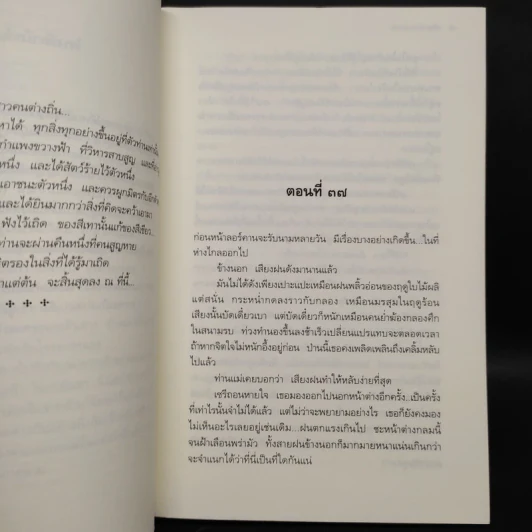 าวคนต่างถิ่น...
หาได้ ทุกสิ่งทุกอย่างขึ้นอยู่ที่ตัวท่านเท่านั้น
กำแพงขวางฟ้า ที่วิหารสาบสูญ และที่
หนึ่ง และได้สัตว์ร้ายไว้ตัวหนึ่ง
เอาชนะตัวหนึ่ง และควรผูกมิตรกับอีก
ะได้ยินมากกว่าสิ่งที่คิดจะคว้าเอามา
ฟังไว้เถิด ของสีเทานั้นแก้ของสีเขียว...
ท่านจะผ่านคืนหนึ่งที่คนสูญหาย
ตรองในสิ่งที่ได้รู้มาเถิด
าแต่ต้น จะสิ้นสุดลง ณ ที่นี้...
ตอนที่ ๓๗
ก่อนหน้าลอร์คานจะรับนามหลายวัน มีเรื่องบางอย่างเกิดขึ้น...ในที่
ห่างไกลออกไป
ข้างนอก เสียงฝนดังมานานแล้ว
มันไม่ได้ดังเพียงเปาะแปะเหมือนฝนพลิ้วอ่อนของฤดูใบไม้ผลิ
แต่สนั่น กระหน่ำกดลงราวกับกลอง เหมือนมรสุมในฤดูร้อน
เสียงนั้นบัดเดี๋ยวเบา แต่บัดเดี๋ยวก็หนักเหมือนคนย่ำฆ้องกลองศึก
ในสนามรบ ท่วงทำนองขึ้นลงช้าเร็วเปลี่ยนแปรแทบจะตลอดเวลา
ถ้าหากจิตใจไม่หนักอึ้งอยู่ก่อน ป่านนี้เธอคงเพลิดเพลินถึงเคลิ้มหลับ
ไปแล้ว
ท่านแม่เคยบอกว่า เสียงฝนทำให้หลับง่ายที่สุด
เซรีถอนหายใจ เธอมองออกไปนอกหน้าต่างอีกครั้ง..เป็นครั้ง
ที่เท่าไรนั้นจำไม่ได้แล้ว แต่ไม่ว่าจะพยายามอย่างไร เธอก็ยังคงมอง
ไม่เห็นอะไรเลยอยู่เช่นเดิม...ฝนตกแรงเกินไป ชะหน้าต่างกลมนี้
จนฝ้าเลือนพร่ามัว ทั้งสายฝนข้างนอกก็มากมายหนาแน่นเกินกว่า
จะจำแนกได้ว่าที่นี่เป็นที่ใดกันแน่